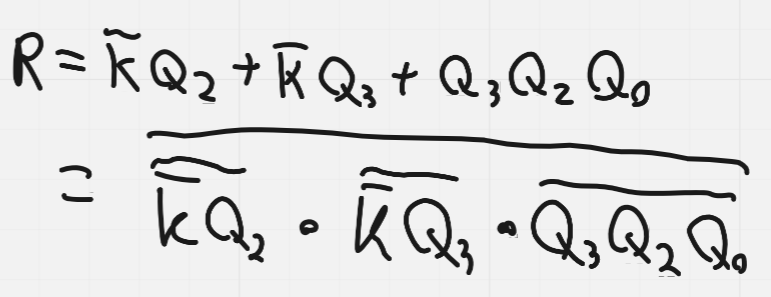 R = k̅Q₂ + k̅Q₃ + Q₃Q₂Q₀
= \overline{\overline{\overline{k}Q₂} · \overline{\overline{k}Q₃} · \overline{Q₃Q₂Q₀}}